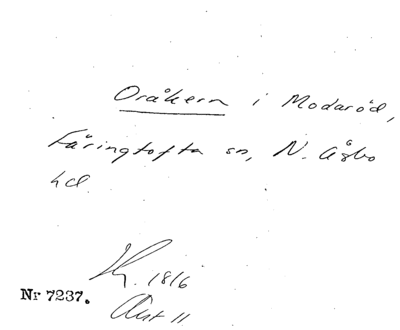 Oråkern i Modaröd,
Färingtofta sn, N. Åsbo
hd.
1816
Nr 7237.
Akt 11